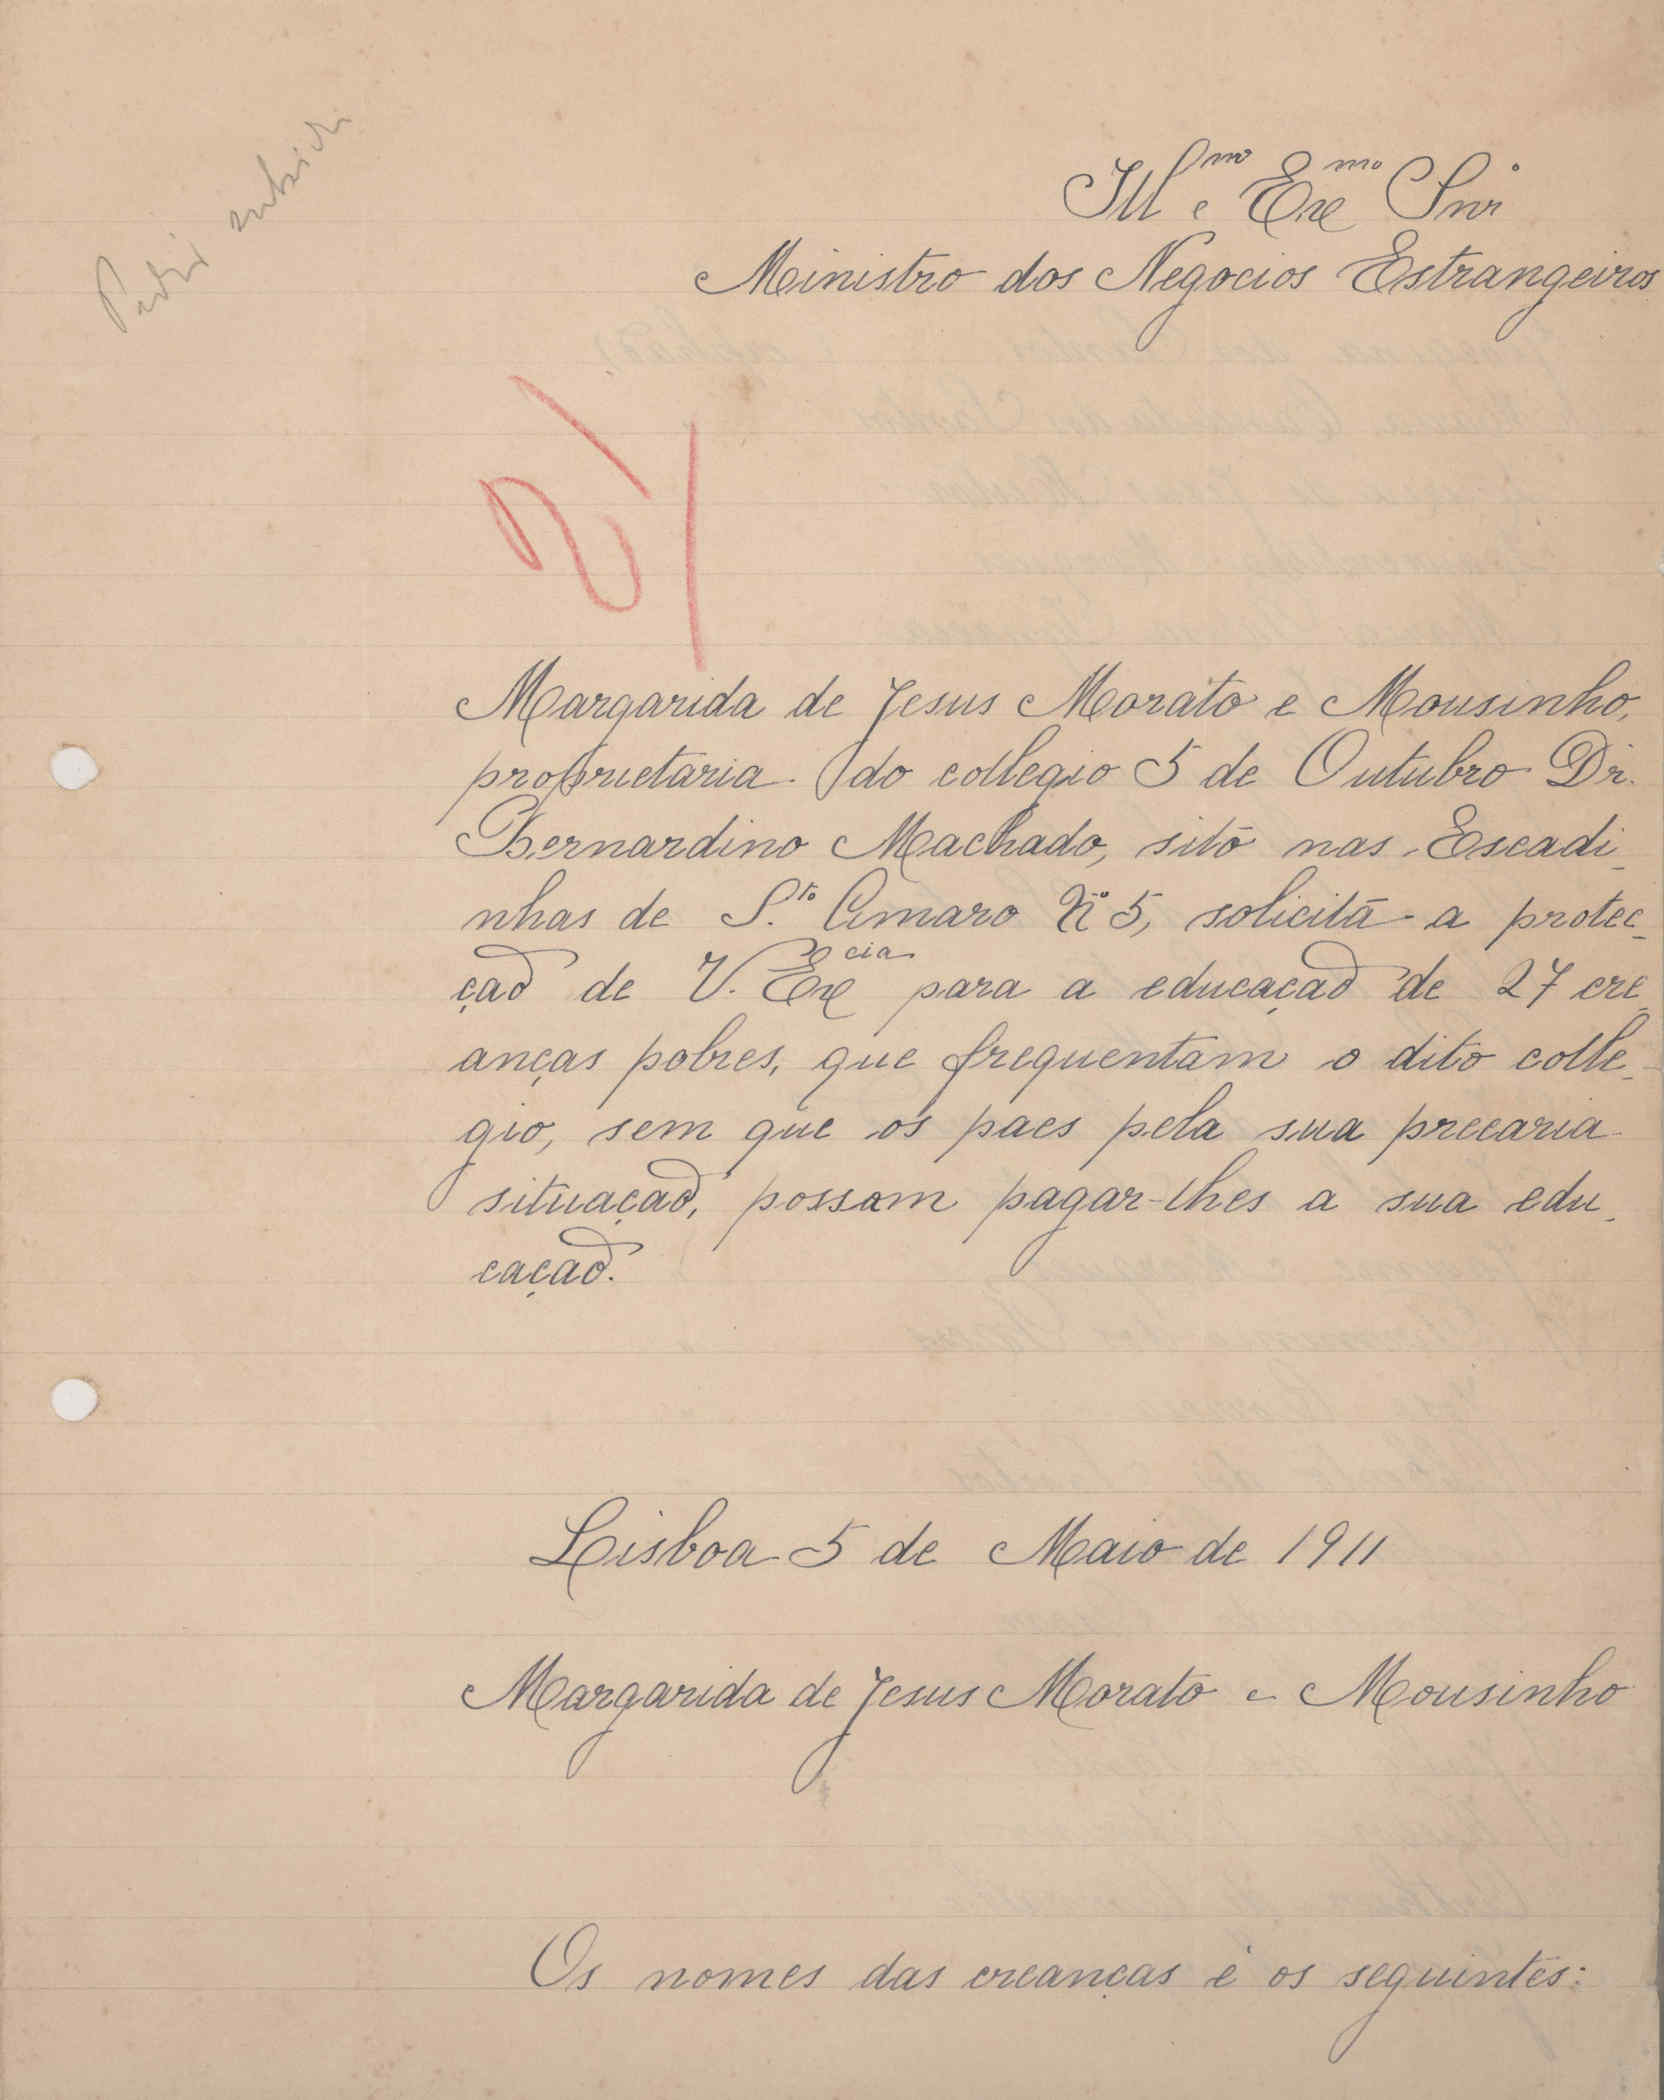 Ill.mo e Exmo Snr
Ministro dos Negocios Estrangeiros
Margarida de Jesus Morato e Mousinho,
proprietaria do collegio 5 de Outubro Dr.
Bernardino Machado, sito nas Escadi-
nhas de S.to Amaro Nº 5, solicita a protec-
çaõ de V. Excia para a educaçaõ de 27 cre-
anças pobres, que frequentam o dito colle-
gio, sem que os paes pela sua precaria
situaçaõ, possam pagar-lhes a sua edu-
caçaõ.
Lisboa 5 de Maio de 1911
Margarida de Jesus Morato e Mousinho
Os nomes das creanças é os seguintes: